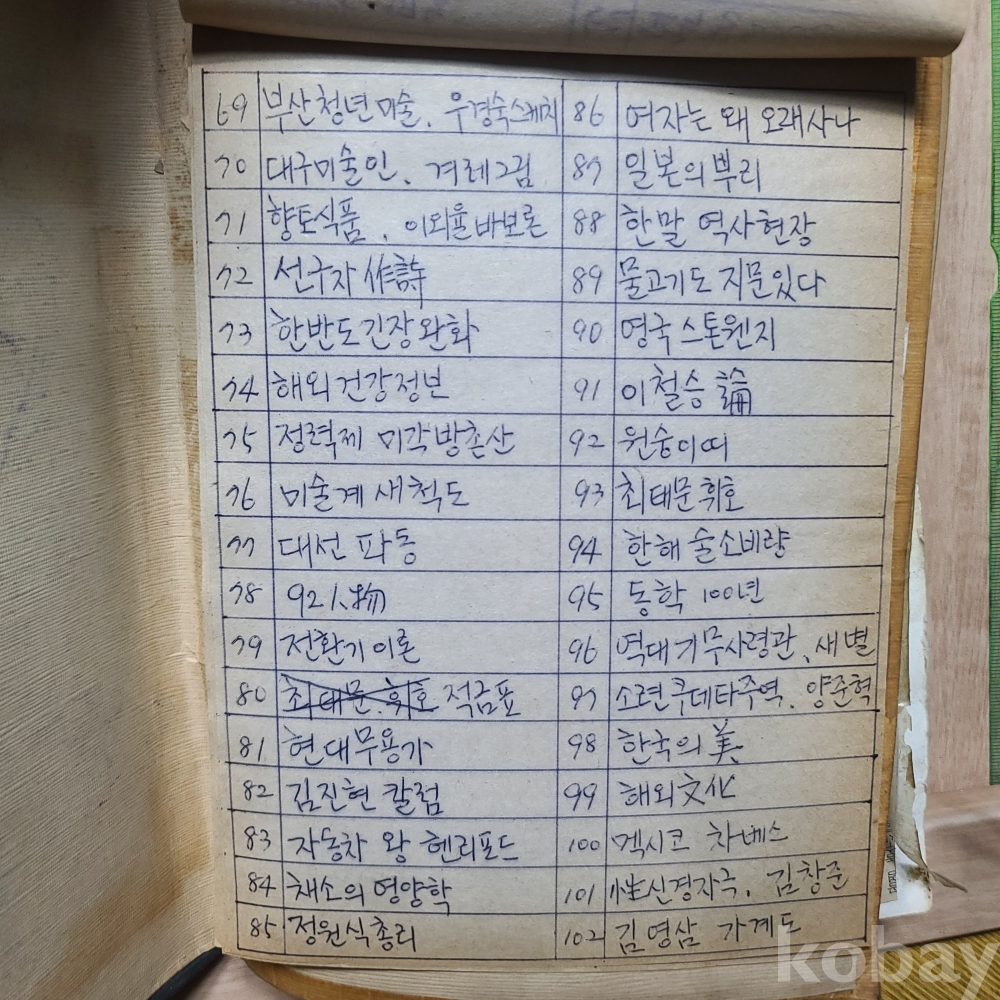 69 부산청년미술. 우경숙스케치
70 대구미술인. 겨레그림
71 향토식품. 이외율바보론
72 선구자 作詩
73 한반도긴장완화
74 해외건강정보
75 정력제 미각방촌산
76 미술계 새척도
77 대선 파동
78 92人物
79 전환기이론
80 최태문.휘호 적금표
81 현대무용가
82 김진현 칼럼
83 자동차 왕 헨리포드
84 채소의 영양학
85 정원식총리
86 여자는 왜 오래사나
87 일본의 뿌리
88 한말 역사현장
89 물고기도 지문있다
90 영국 스톤웬지
91 이철승 論
92 원숭이띠
93 최태문 휘호
94 한해 술소비량
95 동학 100년
96 역대기무사령관, 새별
97 소련쿠데타주역. 양준혁
98 한국의 美
99 해외文化
100 멕시코 차베스
101 性신경자극. 김창준
102 김영삼 가계도
kobay